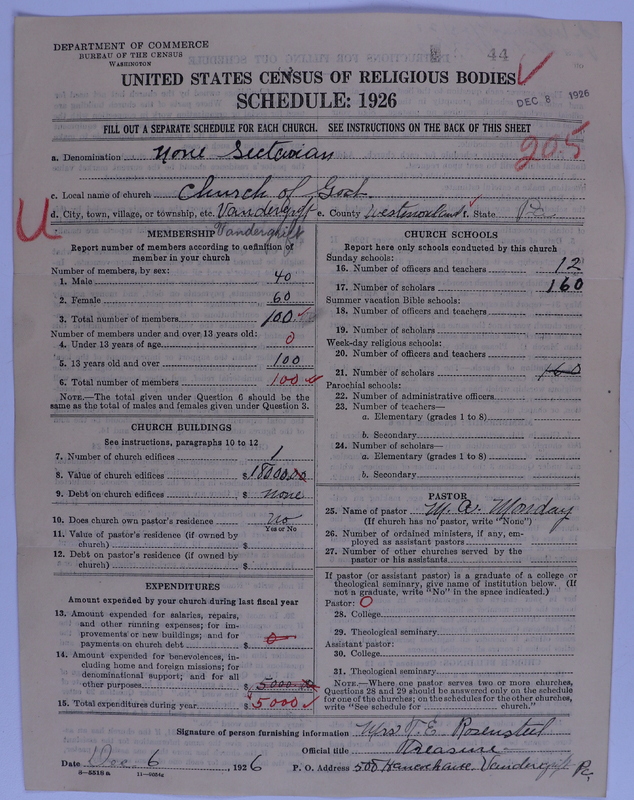 44
DEPARTMENT OF COMMERCE
BUREAU OF THE CENSUS
WASHINGTON
UNITED STATES CENSUS OF RELIGIOUS BODIES
SCHEDULE: 1926
DEC 8 1926
FILL OUT A SEPARATE SCHEDULE FOR EACH CHURCH. SEE INSTRUCTIONS ON THE BACK OF THIS SHEET
205
a. Denomination None Sectarian
c. Local name of church Church of God.
U
d. City, town, village, or township, etc. Vandergrift e. County Westmoreland f. State Pa
Vandergrift
MEMBERSHIP
Report number of members according to definition of
member in your church
Number of members, by sex:
1. Male 40
2. Female 60
3. Total number of members 100
Number of members under and over 13 years old:
4. Under 13 years of age 0
5. 13 years old and over 100
6. Total number of members 100
NOTE.—The total given under Question 6 should be
the same as the total of males and females given under Question 3.
CHURCH BUILDINGS
See instructions, paragraphs 10 to 12
7. Number of church edifices 1
8. Value of church edifices $ 18000.00
9. Debt on church edifices $ none
10. Does church own pastor's residence No
Yes or No
11. Value of pastor's residence (if owned by
church) $
12. Debt on pastor's residence (if owned by
church) $
EXPENDITURES
Amount expended by your church during last fiscal year
13. Amount expended for salaries, repairs,
and other running expenses; for im-
provements or new buildings; and for
payments on church debt $ 0
14. Amount expended for benevolences, in-
cluding home and foreign missions; for
denominational support; and for all
other purposes $ 5000.00
15. Total expenditures during year $ 5000
CHURCH SCHOOLS
Report here only schools conducted by this church
Sunday schools:
16. Number of officers and teachers 12
17. Number of scholars 160
Summer vacation Bible schools:
18. Number of officers and teachers
19. Number of scholars
Week-day religious schools:
20. Number of officers and teachers
21. Number of scholars 160
Parochial schools:
22. Number of administrative officers
23. Number of teachers—
a. Elementary (grades 1 to 8)
b. Secondary
24. Number of scholars—
a. Elementary (grades 1 to 8)
b. Secondary
PASTOR
25. Name of pastor M. A. Monday
(If church has no pastor, write "None")
26. Number of ordained ministers, if any, em-
ployed as assistant pastors
27. Number of other churches served by the
pastor or his assistants
If pastor (or assistant pastor) is a graduate of a college or
theological seminary, give name of institution below. (If
not a graduate, write "No" in the space indicated.)
Pastor: 0
28. College
29. Theological seminary
Assistant pastor:
30. College
31. Theological seminary
NOTE.—Where one pastor serves two or more churches,
Questions 28 and 29 should be answered only on the schedule
for one of the churches; on the schedules for the other churches,
write "See schedule for church."
Signature of person furnishing information Mrs. T. E. Rosensteel
Official title Treasurer
Date Dec 6, 1926 P. O. Address 500 Vandergrift Pa,
8-5518a 11-9684a